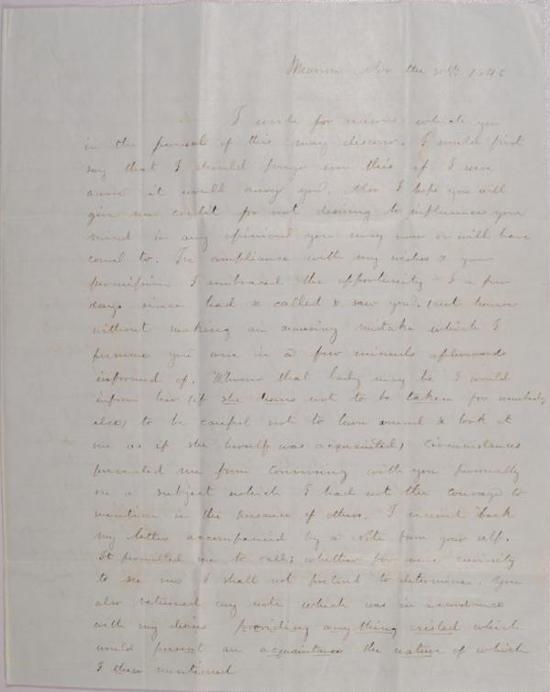 Nov the 30th 184
I write for reasons which you
in the perusal of this may discover. I would first
say that I should forego even this if I were
aware it would annoy you. Also I hope you will
give me credit for not desiring to influence your
mind in any opinions you may now or will have
come to. In compliance with my wishes & your
permission I embraced the opportunity I a few
days since had & called & saw you, but
without making an amusing mistake which I
presume you were in a few minutes afterwards
informed of. that lady may be I would
inform her (if she desires not to be taken for somebody
else) to be careful not to turn around & look at
me as if she herself was acquainted, circumstances
prevented me from conversing with you personally
on a subject which I had not the courage to
mention in the presence of others. I received back
my letter accompanied by a note from your self.
It permitted me to call; whether for mere curiosity
to see me I shall not pretend to determine. You
also returned my note which was in accordance
with my desire providing anything existed which
would prevent an acquaintance the nature of which
I then mentioned